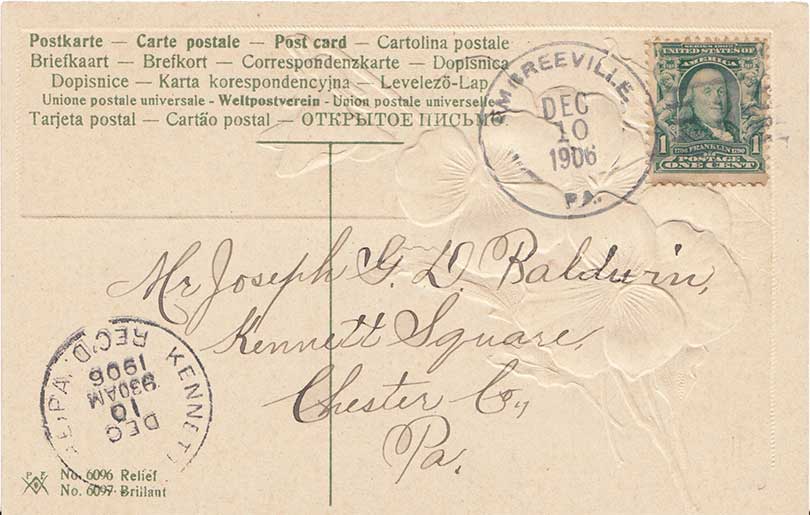 Postkarte — Carte postale — Post card — Cartolina postale
Briefkaart — Brefkort — Correspondenzkarte — Dopisnica
Dopisnice — Karta korespondencyjna — Levelező-Lap
Unione postale universale - Weltpostverein - Union postale universelle
Tarjeta postal — Cartão postal — ОТКРЫТОЕ ПИСЬМО
EMBREEVILLE,
DEC
10
1906
PA.
SERIES 1902
UNITED STATES OF
AMERICA
1706 FRANKLIN 1790
1 1
POSTAGE
ONE CENT
Mr Joseph G. D. Baldwin,
Kennett Square,
Chester Co.,
Pa.
KENNETT
PA. REC'D.
DEC
10
930AM
1906
P F
No. 6096 Relief
No. 6097 Brillant